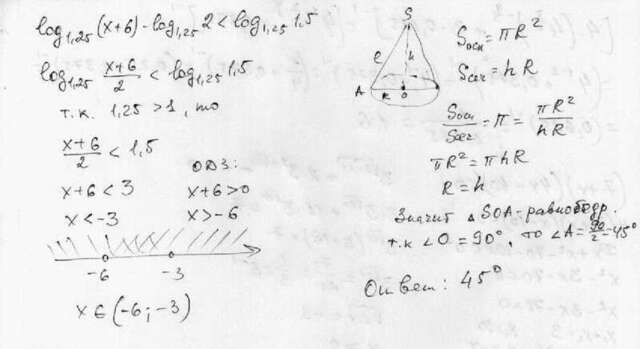 log₁,₂₅(x+6) - log₁,₂₅ 2 < log₁,₂₅ 1,5
log₁,₂₅ (x+6)/2 < log₁,₂₅ 1,5
т.к. 1,25 > 1, то
(x+6)/2 < 1,5
ОДЗ:
x+6 < 3
x+6 > 0
x < -3
x > -6
-6
-3
x ∈ (-6; -3)
S
l
h
A
R
O
Sосн = πR²
Sсеч = hR
Sосн/Sсеч = π = πR²/hR
πR² = πhR
R = h
Значит △SOA - равнобедр
т.к ∠O = 90°, то ∠A = 90/2 = 45°
Ответ: 45°